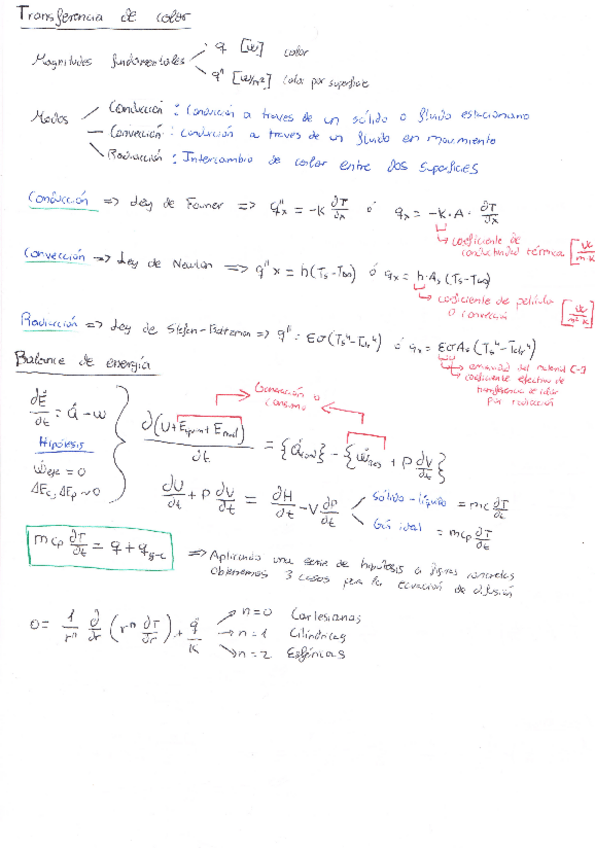 Transferencia de calor
Magnitudes fundamentales
q [W] calor
q'' [W/m²] calor por superficie
Modos
Conducción : Conducción a traves de un sólido o fluido estacionario
Convección : conducción a traves de un fluido en movimiento
Radiación : Intercambio de calor entre dos superficies
Conducción => Ley de Fourier => q''x = -K ∂T/∂x ó qx = -K·A· ∂T/∂x
coeficiente de conductividad térmica [W/m·K
Convección => Ley de Newton => q''x = h(Ts-T∞) ó qx = h·As (Ts-T∞)
coeficiente de película o convección [W/m²·K]
Radiación => Ley de Stefan-Boltzman => q'' = εσ(Ts⁴-Talr⁴) ó qx = εσAs (Ts⁴-Talr⁴)
emisividad del material 0-1
coeficiente efectivo de transferencia de calor por radiación
Balance de energía
dE/dt = Q̇ - ẇ
Hipótesis
ẇeje = 0
ΔEc, ΔEp ~ 0
Generación o consumo
∂(U+Equim+Enucl)/∂t = {Q̇} - {ẇ + P dV/dt}
∂U/∂t + P ∂V/∂t = ∂H/∂t - V ∂P/∂t
Sólido-líquido = mc ∂T/∂t
Gas ideal = mcp ∂T/∂t
mcp ∂T/∂t = q + qg-c
=> Aplicando una serie de hipótesis a figuras concretas
obtenemos 3 casos para la ecuación de difusión
0 = 1/rⁿ ∂/∂r (rⁿ ∂T/∂r) + q̇/K
n=0 Cartesianas
n=1 Cilíndricas
n=2 Esféricas